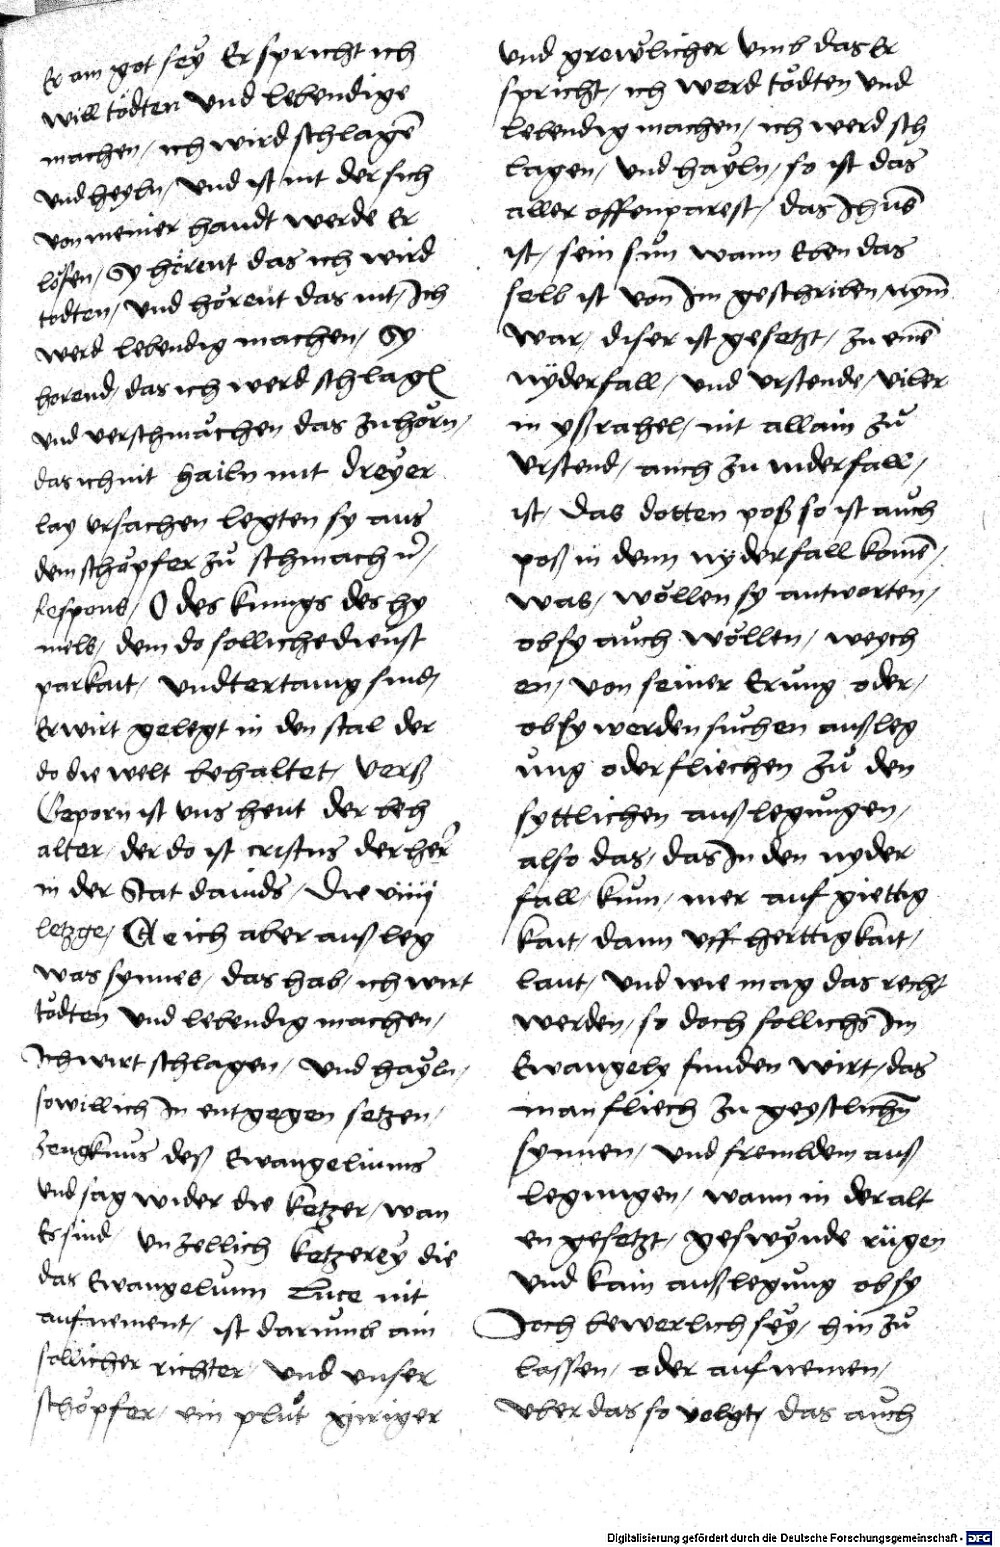 Er ain got sey Er spricht ich
will tödten Vnd lebendige
machen / ich wird schlagē
Vnd heyln / Vnd ist nit der sich
von meiner handt werde Er
lösen / Sy hörent das ich wird
todten / Vnd hörent das nit / Ich
werd lebendig machen / Sy
horend / das ich werd schlagn
vnd verschmächen das zuhörn /
das ich nit hailn mit dreyer
lay vrsachen legten sy aus
dem schöpfer zů schmach
Respons / O des kunigs des hy
mels / dem do solliche dienst
parkait / Vndtertanig sind
Er wirt gelegt in den stal der
do die welt behaltet / Verß
Geporn ist vns heut der beh
alter / der do ist cristus der her
in der Stat dauids / Die viiij
letzge / ich aber auß leg
was synnes / das hab / ich wirt
tödten Vnd lebendig machen /
Ich wirt schlagen / Vnd hayln /
so will ich In entgegen setzen /
zeugknus deß Ewangeliums
vnd sag wider die ketzer / wan
Es sind / vn zellich ketzerey die
das Ewangelium Luce nit
aufnement / ist darumb ain
sollicher richter / Vnd vnser
schöpfer / ein plůt giriger
Vnd grewlicher Vmb das Er
spricht / ich werd tödten Vnd
lebendig machen / ich werd sch
lagen / Vnd hayln / so ist das
aller offenparest / das Ihūs
ist / sein sun wann Eben das
selb ist von Im geschriben nym
war / diser ist gesetzt / zu einē
nyderfall / Vnd vrstende / viler
in yßrahel / nit allain zů
vrstend / auch zu niderfall /
ist / das dotten poß so ist auch
poß in denn nyderfall komē /
was / wöllen sy antworten /
ob sy auch wöllen / weych
en / von seiner Erung oder /
ob sy werden suchen außleg
ung oder fliechen zů den
syttlichen außlegungen /
also das / das In den nyder
fall / kum / mer auf giettig
kait / dann vff herttigkait /
laut / Vnd wie mag das recht
werden / so doch sollichs Im
Ewangely funden wirt / das
man fliech zu geystlichn
synnen / Vnd frembdem auß
legungen / wann in der alt
en gesetzt / geswynde rügen
vnd kain außlegung ob sy
Ioch bewerlich sey / hin zů
lassen / oder aufnemen /
Vber das so volgt / das auch
Digitalisierung gefördert durch die Deutsche Forschungsgemeinschaft - DFG